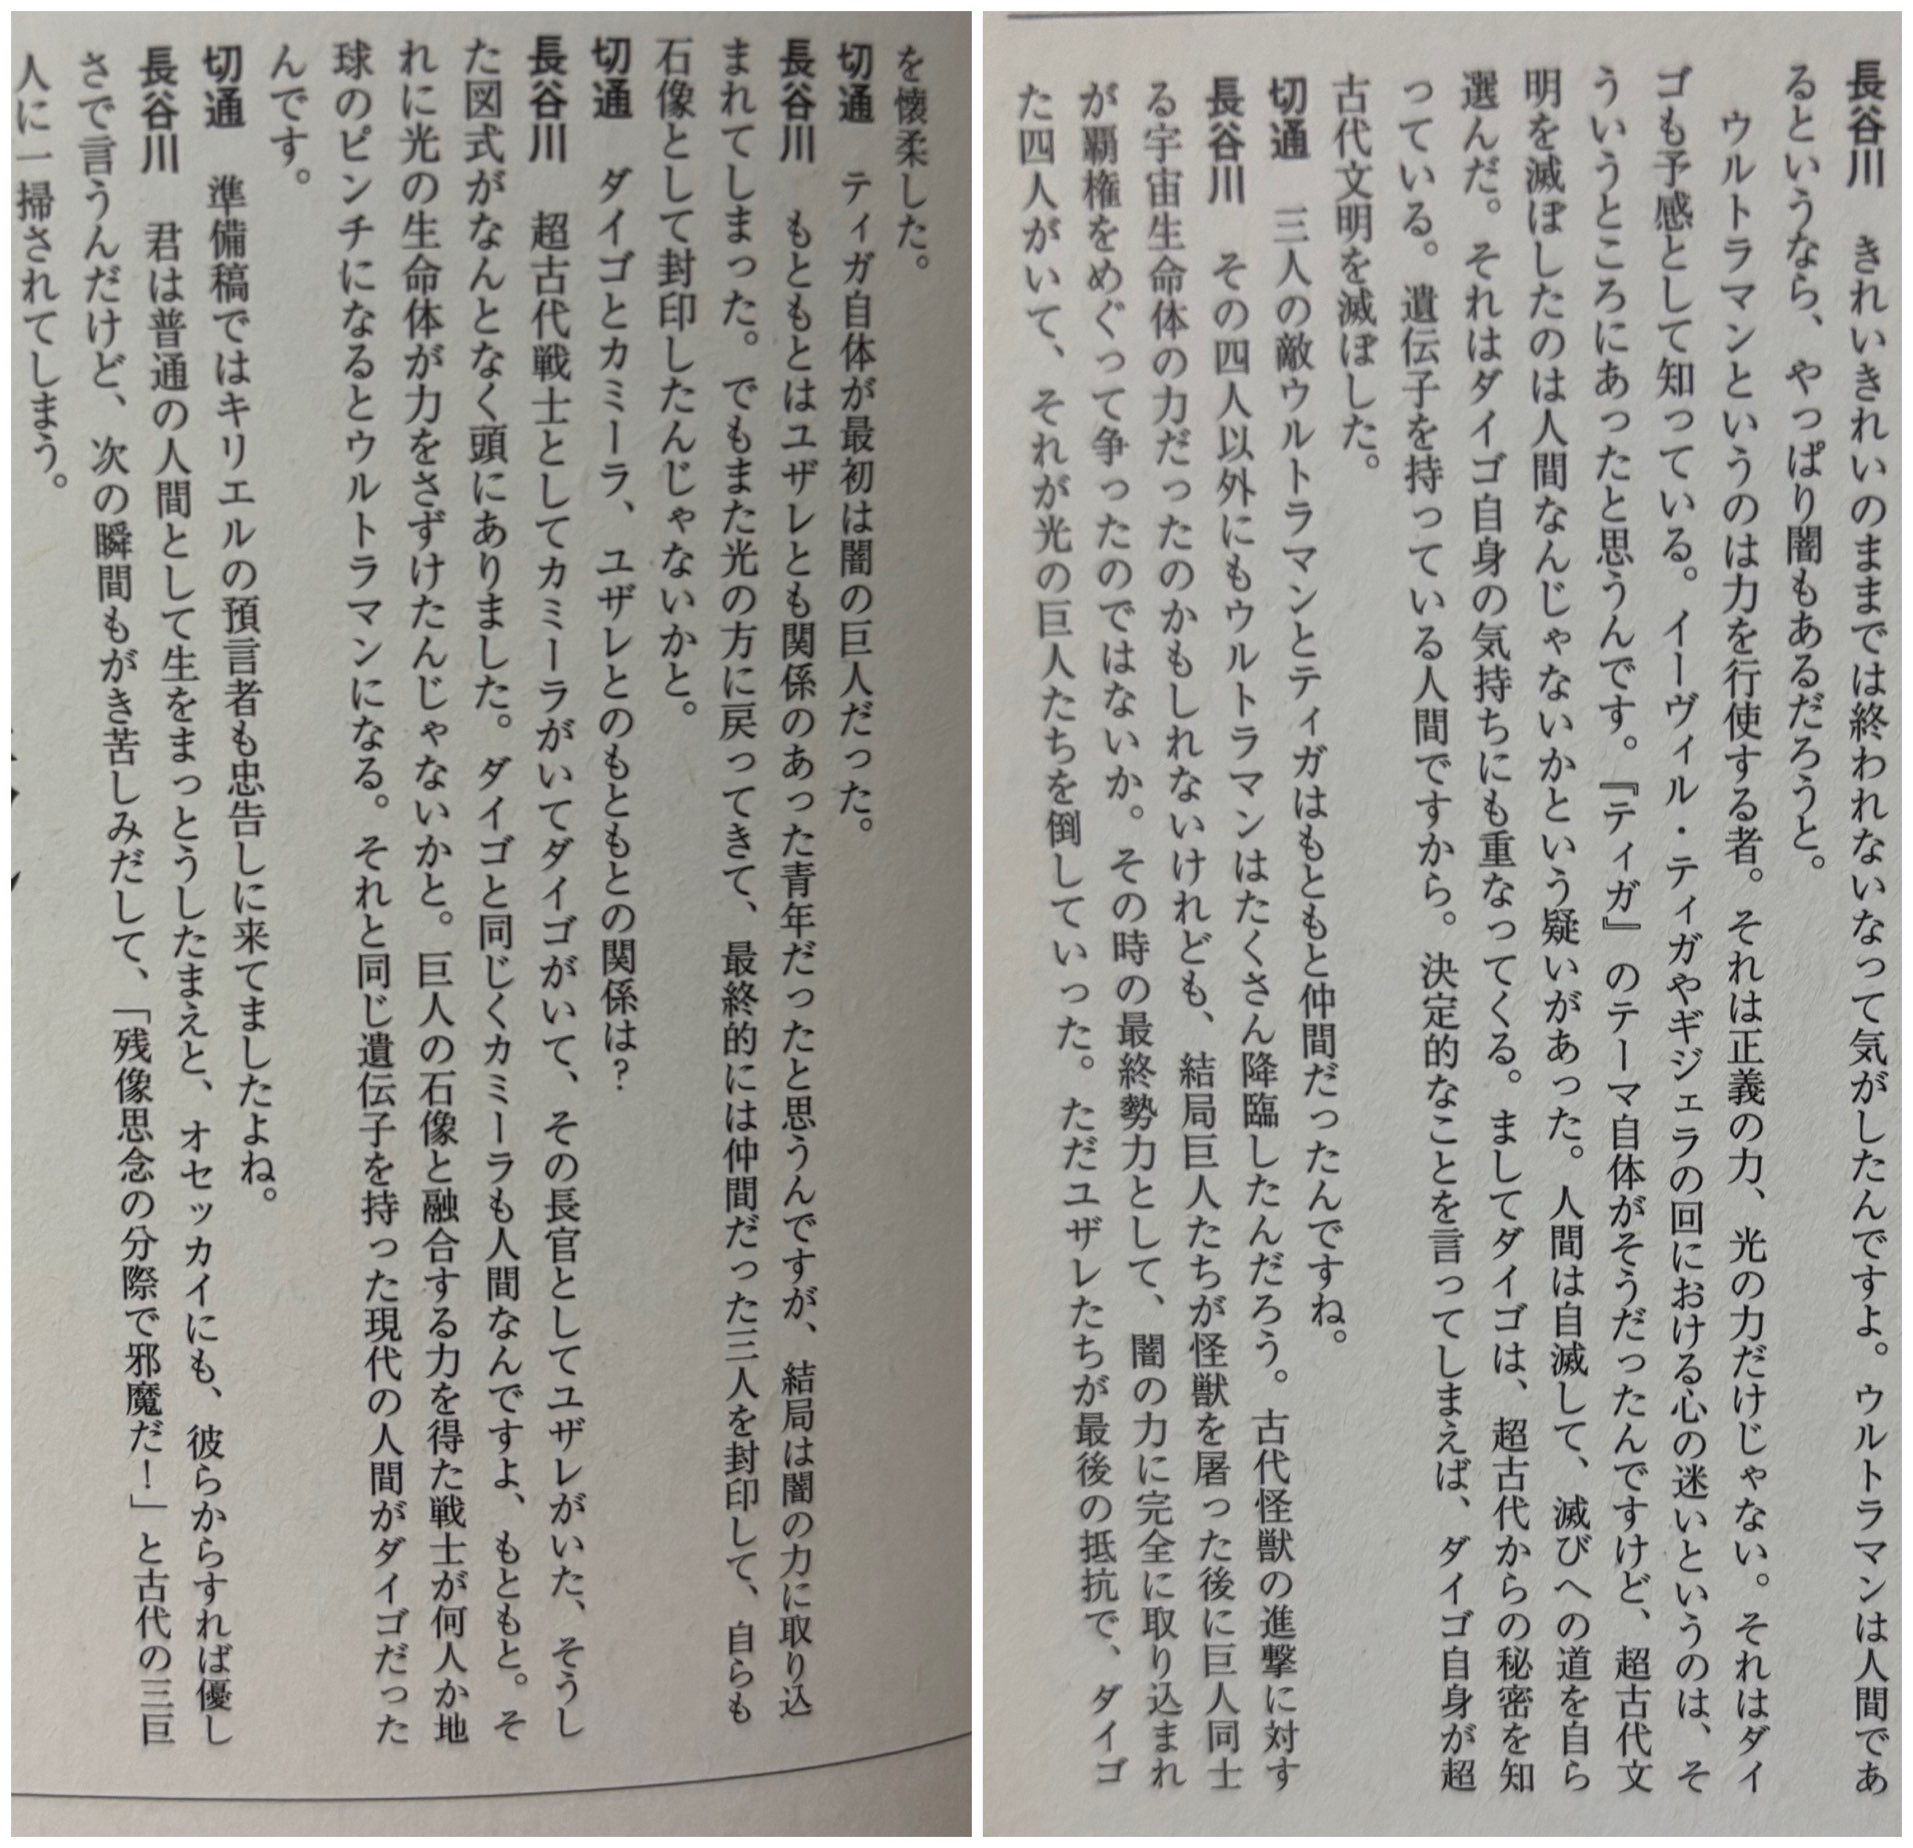 長谷川　きれいきれいのままでは終われないなって気がしたんですよ。ウルトラマンは人間であ
るというなら、やっぱり闇もあるだろうと。
　ウルトラマンというのは力を行使する者。それは正義の力、光の力だけじゃない。それはダイ
ゴも予感として知っている。イーヴィル・ティガやギジェラの回における心の迷いというのは、そ
ういうところにあったと思うんです。『ティガ』のテーマ自体がそうだったんですけど、超古代文
明を滅ぼしたのは人間なんじゃないかという疑いがあった。人間は自滅して、滅びへの道を自ら
選んだ。それはダイゴ自身の気持ちにも重なってくる。ましてダイゴは、超古代からの秘密を知
っている。遺伝子を持っている人間ですから。決定的なことを言ってしまえば、ダイゴ自身が超
古代文明を滅ぼした。
切通　三人の敵ウルトラマンとティガはもともと仲間だったんですね。
長谷川　その四人以外にもウルトラマンはたくさん降臨したんだろう。古代怪獣の進撃に対す
る宇宙生命体の力だったのかもしれないけれども、結局巨人たちが怪獣を屠った後に巨人同士
が覇権をめぐって争ったのではないか。その時の最終勢力として、闇の力に完全に取り込まれ
た四人がいて、それが光の巨人たちを倒していった。ただユザレたちが最後の抵抗で、ダイゴ
を懐柔した。
切通　ティガ自体が最初は闇の巨人だった。
長谷川　もともとはユザレとも関係のあった青年だったと思うんですが、結局は闇の力に取り込
まれてしまった。でもまた光の方に戻ってきて、最終的には仲間だった三人を封印して、自らも
石像として封印したんじゃないかと。
切通　ダイゴとカミーラ、ユザレとのもともとの関係は？
長谷川　超古代戦士としてカミーラがいてダイゴがいて、その長官としてユザレがいた、そうし
た図式がなんとなく頭にありました。ダイゴと同じくカミーラも人間なんですよ、もともと。そ
れに光の生命体が力をさずけたんじゃないかと。巨人の石像と融合する力を得た戦士が何人か地
球のピンチになるとウルトラマンになる。それと同じ遺伝子を持った現代の人間がダイゴだった
んです。
切通　準備稿ではキリエルの預言者も忠告しに来てましたよね。
長谷川　君は普通の人間として生をまっとうしたまえと、オセッカイにも、彼らからすれば優し
さで言うんだけど、次の瞬間もがき苦しみだして、「残像思念の分際で邪魔だ！」と古代の三巨
人に一掃されてしまう。